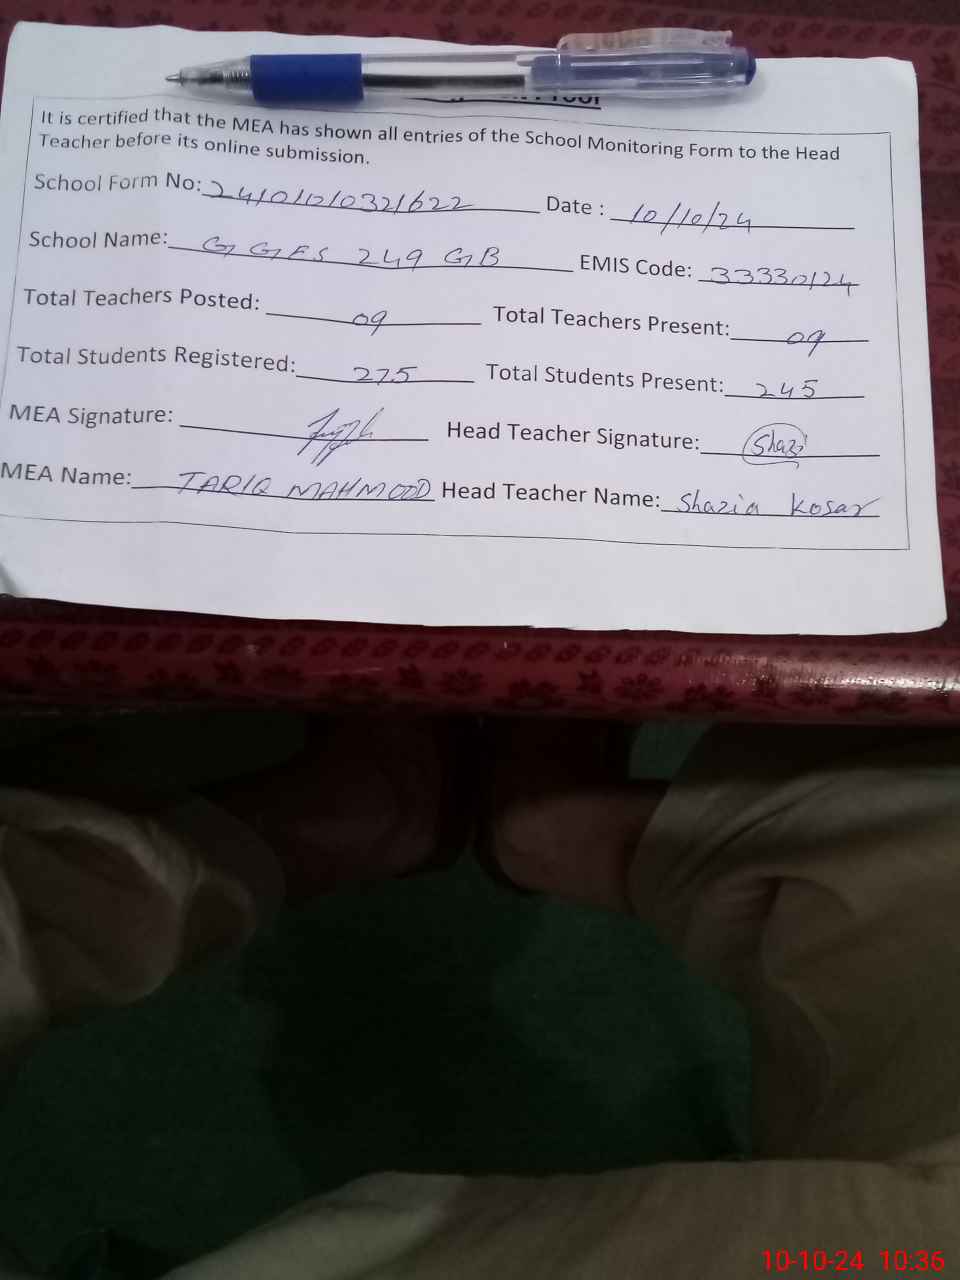 It is certified that the MEA has shown all entries of the School Monitoring Form to the Head
Teacher before its online submission.
School Form No: 24101010321622 Date : 10/10/24
School Name: GGES 249 GB EMIS Code: 33330124
Total Teachers Posted: 09 Total Teachers Present: 09
Total Students Registered: 275 Total Students Present: 245
MEA Signature: Head Teacher Signature: Shazi
MEA Name: TARIQ MAHMOOD Head Teacher Name: Shazia Kosar
10-10-24 10:36